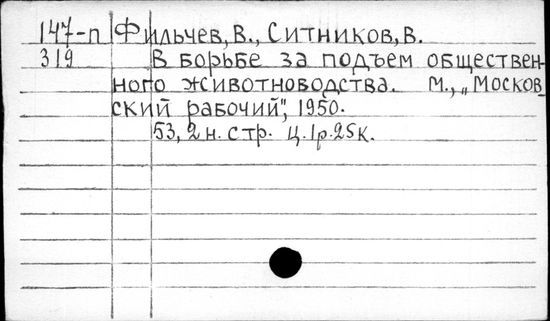 147-п Фильчев, В., Ситников, В.
319 В борьбе за подъем обществен-
ного животноводства. М., „Москов
ский рабочий", 1950.
53, 2 н. стр. ц. 1 р. 25 к.